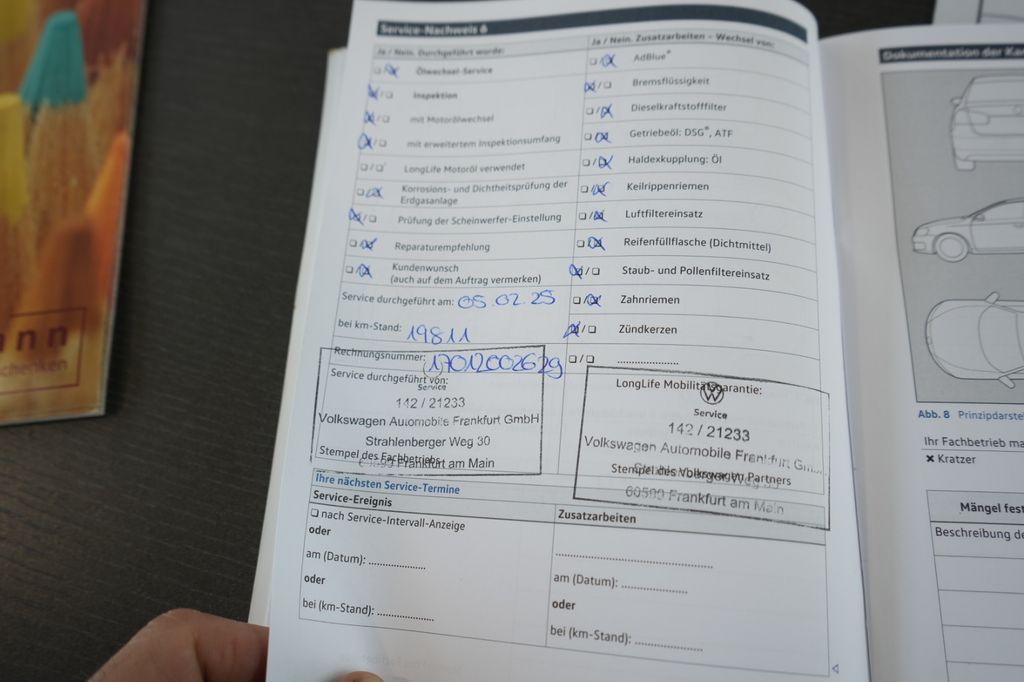 Service-Nachweis 6
Ja / Nein. Durchgeführt wurde:
Ölwechsel-Service
Inspektion
mit Motorölwechsel
mit erweitertem Inspektionsumfang
LongLife Motoröl verwendet
Korrosions- und Dichtheitsprüfung der
Erdgasanlage
Prüfung der Scheinwerfer-Einstellung
Reparaturempfehlung
Kundenwunsch
(auch auf dem Auftrag vermerken)
Service durchgeführt am: 05.02.25
bei km-Stand: 19811
Rechnungsnummer: 17012002629
Service durchgeführt von:
Service
142 / 21233
Volkswagen Automobile Frankfurt GmbH
Strahlenberger Weg 30
Stempel des Fachbetriebs
Frankfurt am Main
Ja / Nein. Zusatzarbeiten – Wechsel von:
AdBlue®
Bremsflüssigkeit
Dieselkraftstofffilter
Getriebeöl: DSG®, ATF
Haldexkupplung: Öl
Keilrippenriemen
Luftfiltereinsatz
Reifenfüllflasche (Dichtmittel)
Staub- und Pollenfiltereinsatz
Zahnriemen
Zündkerzen
....................
LongLife Mobilitätsgarantie:
Service
142 / 21233
Volkswagen Automobile Frankfurt
Stempel des Volkswagen Partners
60599 Frankfurt am Main
Ihre nächsten Service-Termine
Service-Ereignis
❑ nach Service-Intervall-Anzeige
oder
am (Datum): ....................
oder
bei (km-Stand): ....................
Zusatzarbeiten
am (Datum): ....................
oder
bei (km-Stand): ....................
Dokumentation der
Abb. 8 
Ihr Fachbetrieb
✕ Kratzer
Mängel
Beschreibung